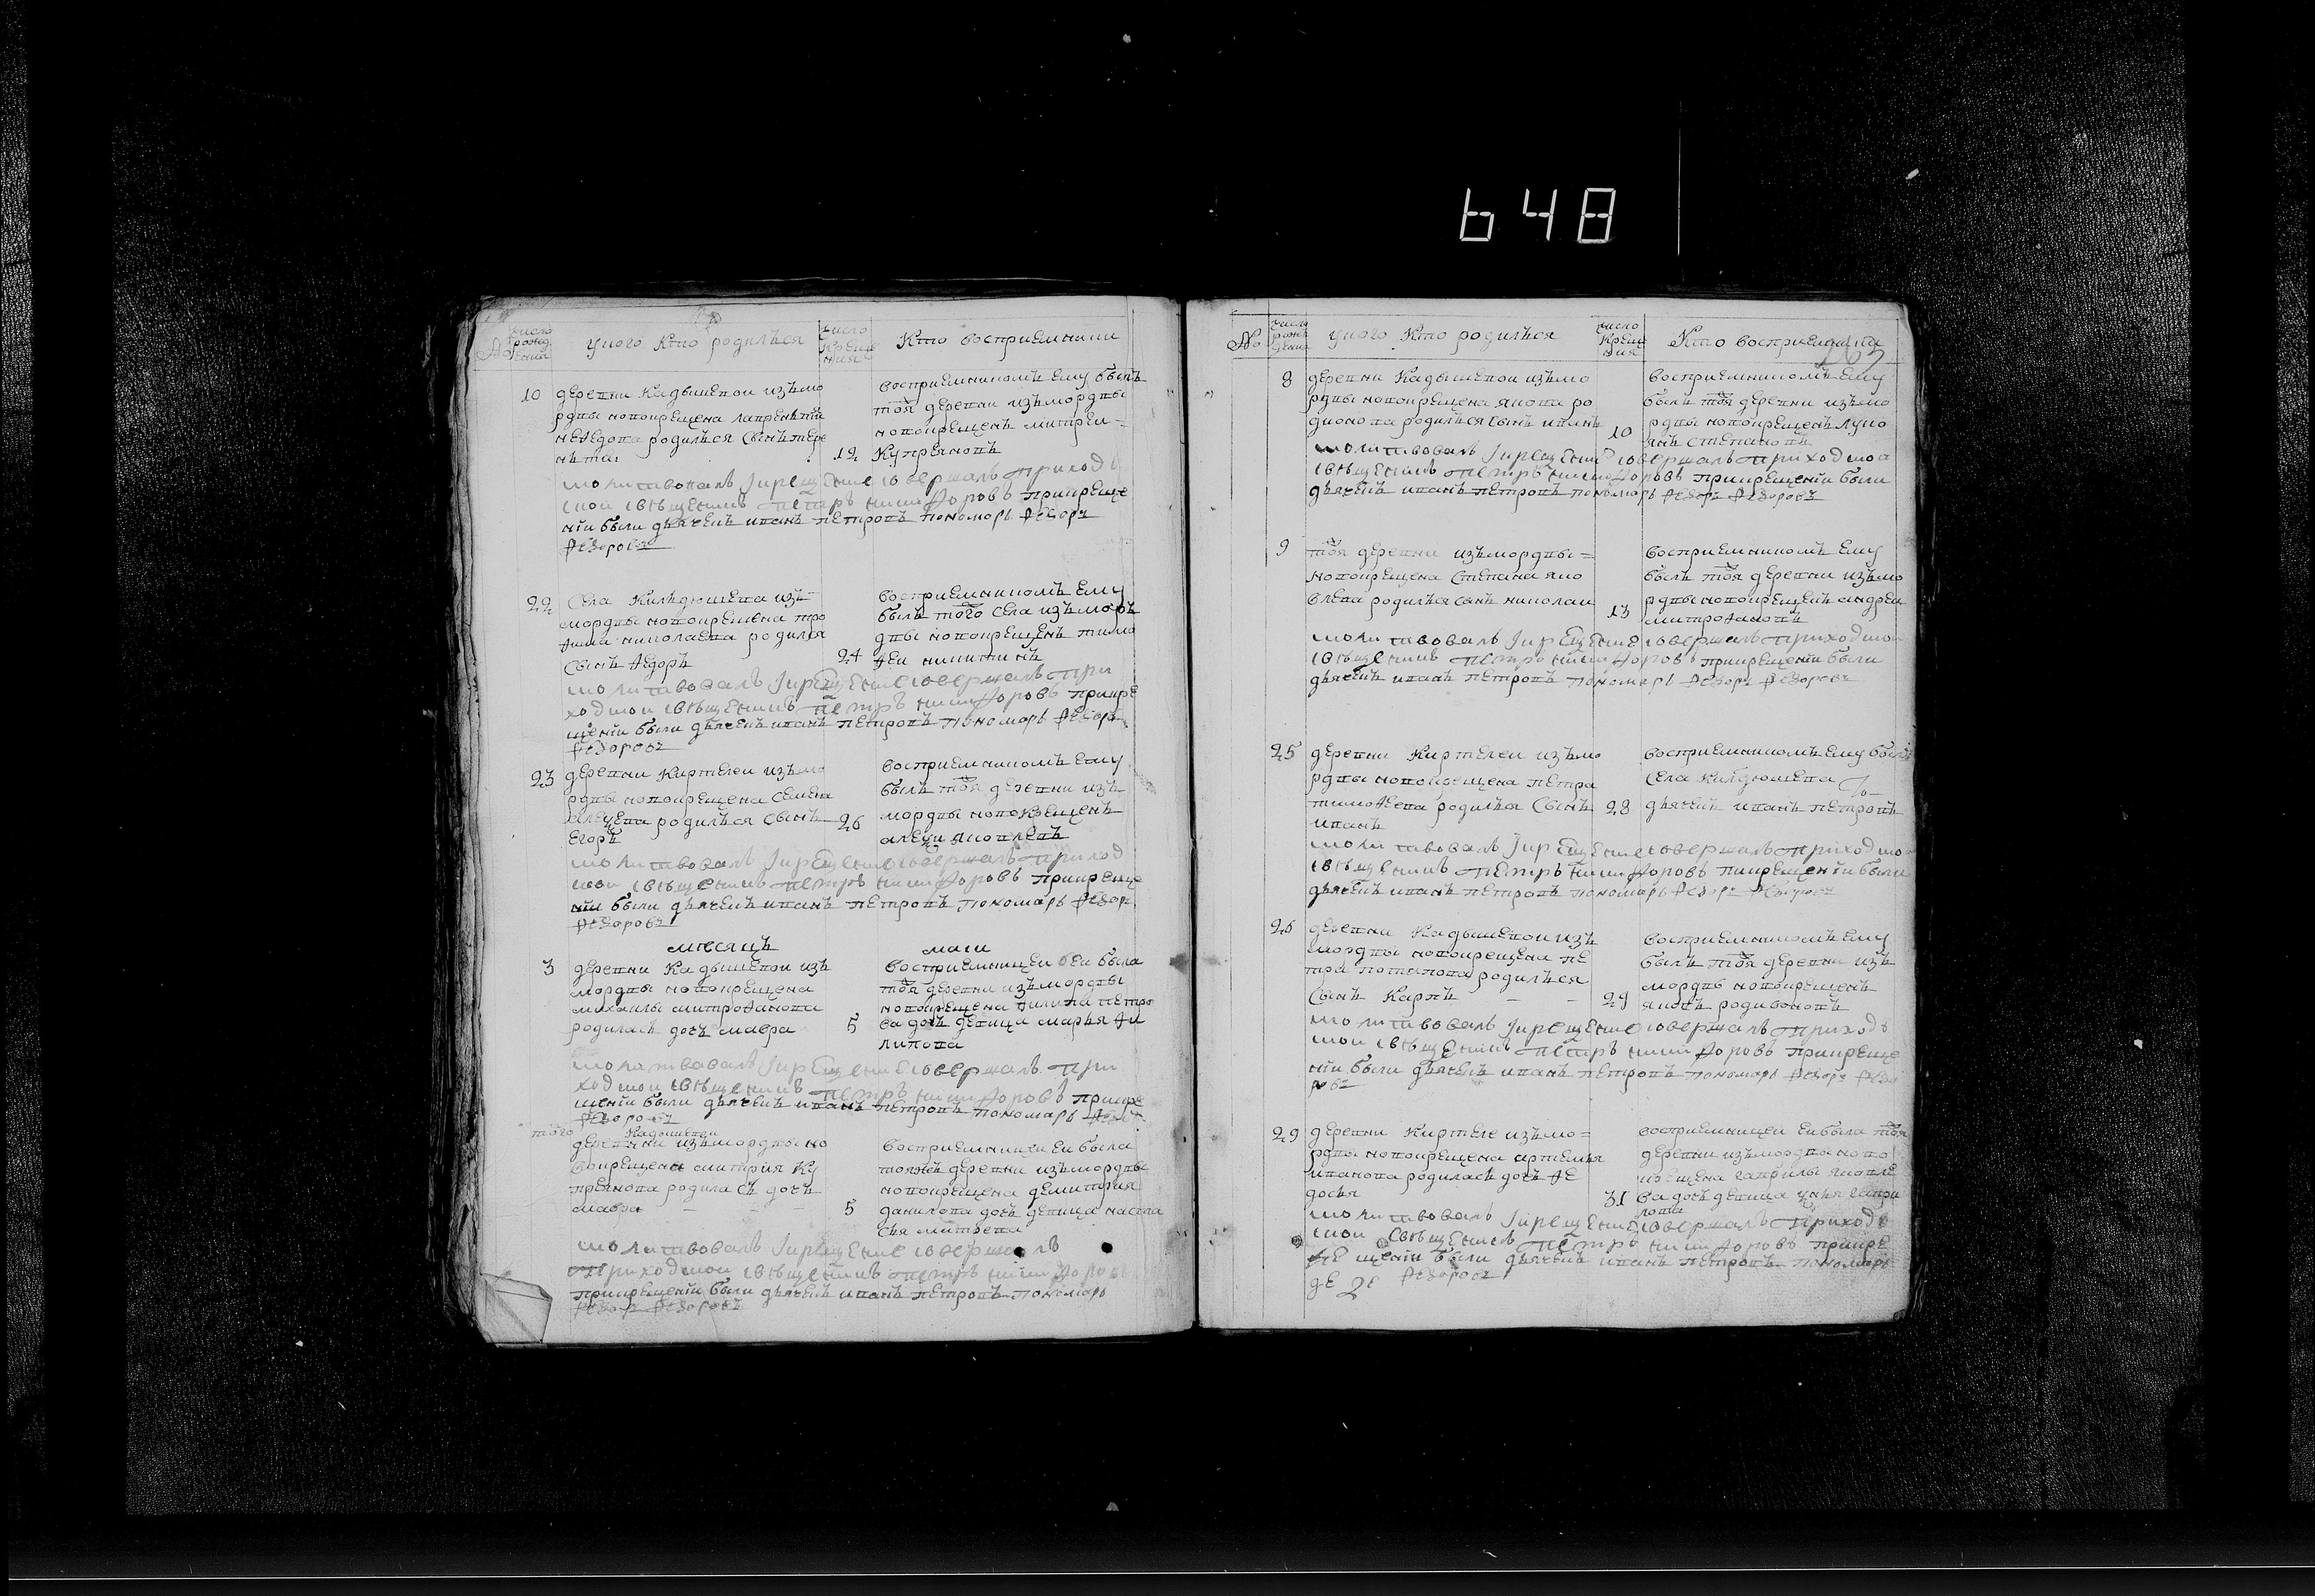 648
№
число рожд ения
у кого кто родился
число креще ния
Кто восприемники
10
деревни Кадышевой изъ мо
рдвы новокрещена лаврентия
мефедова родился сынъ тере
нтеи
12
восприемникомъ ему былъ
тоя деревни изъ мордвы
новокрещенъ митреи
Купреяновъ
молитвовалъ и крещение совершалъ приход
скои священникъ петръ никифоровъ прикреще
нии были дьячекъ иванъ петровъ пономарь федоръ
федоровъ
22
Села Килдюшева изъ
мордвы новокрещена тро
фима николаева родился
сынъ федоръ
24
восприемникомъ ему
былъ того села изъ морд
двы новокрещенъ тимо
феи никитинъ
молитвовалъ и крещение совершалъ при
ходскои священникъ петръ никифоровъ прикре
щении были дьячекъ иванъ петровъ пономарь федоръ
федоровъ
23
деревни Киртелеи изъ мо
рдвы новокрещена семена
алеѯева родился сынъ
Егоръ
26
восприемникомъ ему
былъ тоя деревни изъ
мордвы новокрещенъ
алеѯеи яковлевъ
молитвовалъ и крещение совершалъ приход
скои священникъ петръ никифоровъ прикреще
нии были дьячекъ иванъ петровъ пономарь федоръ
федоровъ
месяцъ маи
3
деревни Кадышевои изъ
мордвы новокрещена
михаилы митрофанова
родилась дочь мавра
5
восприемницеи еи была
тоя деревни изъ мордвы
новокрещена филипа петро
ва дочь девица марья фи
липова
молитвовалъ и крещение совершалъ при
ходскои священникъ петръ никифоровъ прикре
щении были дьячекъ иванъ петровъ пономарь
федоровъ
того
Кадышевои
деревни изъ мордвы но
вокрещена митрия Ку
преянова родилась дочь
мавра
5
восприемницеи еи была
тояжъ деревни изъ мордвы
новокрещена демитрия
данилова дочь девица наста
сья митрева
молитвовалъ и крещение совершалъ
приходскои священникъ петръ никифоровъ
прикрещении были дьячекъ иванъ петровъ пономарь
федоръ федоровъ
№
число рожд дения
у кого кто родился
число крещ ния
Кто восприемники
8
деревни Кадышевои изъ мо
рдвы новокрещена якова ро
дионова родился сынъ иванъ
10
восприемникомъ ему
былъ тоя деревни изъ мо
рдвы новокрещенъ луко
янъ степановъ
молитвовалъ и крещение совершалъ приходскои
священникъ петръ никифоровъ прикрещении были
дьячекъ иванъ петровъ пономарь федоръ федоровъ
9
тоя деревни изъ мордвы
новокрещена степана яко
влева родился сынъ николаи
13
восприемникомъ ему
былъ тоя деревни изъ мо
рдвы новокрещенъ андреи
митрофановъ
молитвовалъ и крещение совершалъ приходскои
священникъ петръ никифоровъ прикрещении были
дьячекъ иванъ петровъ пономарь федоръ федоровъ
25
деревни Киртелеи изъ мо
рдвы новокрещена петра
тимофеева родился сынъ
иванъ
28
восприемникомъ ему былъ
села Килдюшева
дьячекъ иванъ петровъ
молитвовалъ и крещение совершалъ приходскои
священникъ петръ никифоровъ пикрещении были
дьячекъ иванъ петровъ пономарь федоръ федоровъ
26
деревни Кадышевои изъ
мордвы новокрещена пе
тра потапова родился
сынъ Карпъ
29
восприемникомъ ему
былъ тоя деревни изъ
мордвы новокрещенъ
яковъ родивоновъ
молитвовалъ и крещение совершалъ приход
скои священникъ петръ никифоровъ прикреще
нии были дьячекъ иванъ петровъ пономарь федоръ федо
ровъ
29
деревни Киртеле изъ мо
рдвы новокрещена артемья
иванова родилась дочь фе
досья
31
восприемницеи еи была тоя
деревни изъ мордвы ново
крещена гаврилы яковле
ва дочь девица гаври
лова
молитвовалъ и крещение совершалъ приход
скои священникъ петръ никифоровъ прикре
щении были дьячекъ иванъ петровъ пономарь
федоровъ